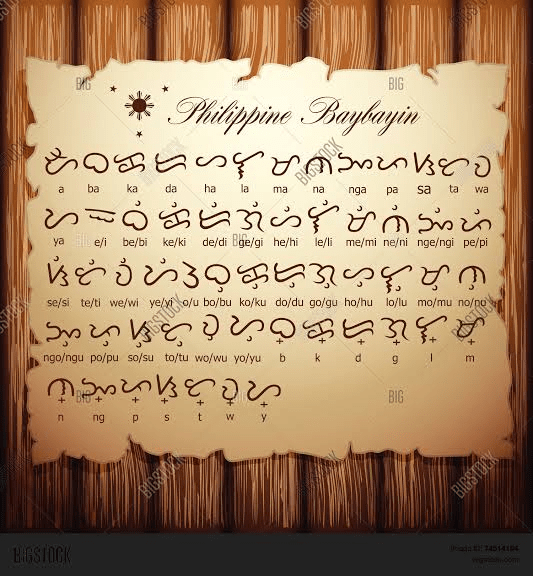 Philippine Baybayin
ᜀ ᜊ ᜃ ᜇ ᜑ ᜎ ᜋ ᜈ ᜅ ᜉ ᜐ ᜆ ᜏ
a ba ka da ha la ma na nga pa sa ta wa
ᜌ ᜁ ᜊᜒ ᜃᜒ ᜇᜒ ᜄᜒ ᜑᜒ ᜎᜒ ᜋᜒ ᜈᜒ ᜅᜒ ᜉᜒ
ya e/i be/bi ke/ki de/di ge/gi he/hi le/li me/mi ne/ni nge/ngi pe/pi
ᜐᜒ ᜆᜒ ᜏᜒ ᜌᜒ ᜂ ᜊᜓ ᜃᜓ ᜇᜓ ᜄᜓ ᜑᜓ ᜎᜓ ᜋᜓ ᜈᜓ
se/si te/ti we/wi ye/yi o/u bo/bu ko/ku do/du go/gu ho/hu lo/lu mo/mu no/nu
ᜅᜓ ᜉᜓ ᜐᜓ ᜆᜓ ᜏᜓ ᜌᜓ ᜊ᜔ ᜃ᜔ ᜇ᜔ ᜄ᜔ ᜎ᜔ ᜋ᜔
ngo/ngu po/pu so/su to/tu wo/wu yo/yu b k d g l m
ᜈ᜔ ᜅ᜔ ᜉ᜔ ᜐ᜔ ᜆ᜔ ᜏ᜔ ᜌ᜔
n ng p s t w y
BIGSTOCK
Image ID: 74514184
bigstock.com